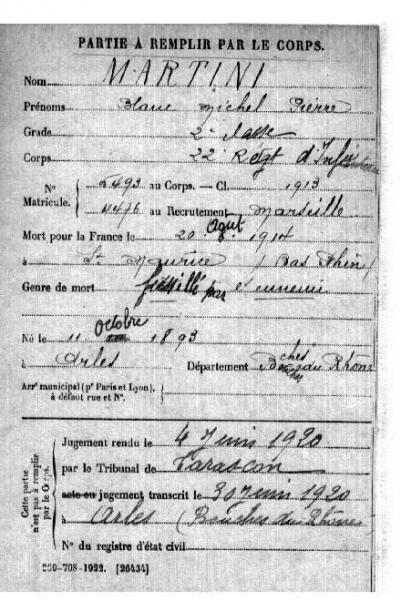 PARTIE À REMPLIR PAR LE CORPS.
Nom MARTINI
Prénoms Blanc Michel Pierre
Grade 2e classe
Corps 22e Régt d'Infanterie
N° Matricule. 5493 au Corps. — Cl. 1913
4476 au Recrutement Marseille
Mort pour la France le 20 Août 1914
à St Maurice (Bas Rhin)
Genre de mort fusillé par l'ennemi
Né le 11 Octobre 1893
à Arles Département Bches du Rhône
Arrt municipal (pr Paris et Lyon),
à défaut rue et N°.
Cette partie
n'est pas à remplir
par le Corps.
Jugement rendu le 4 Juin 1920
par le Tribunal de Tarascon
acte ou jugement transcrit le 30 Juin 1920
à Arles (Bouches du Rhône)
N° du registre d'état civil
-708-1922. [26434]